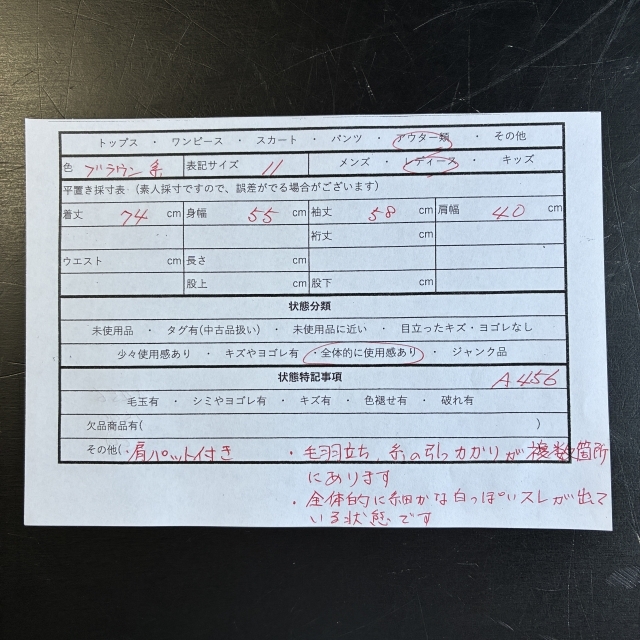 トップス ・ ワンピース ・ スカート ・ パンツ ・ アウター類 ・ その他
色 ブラウン系 表記サイズ 11 メンズ ・ レディース ・ キッズ
平置き採寸表（素人採寸ですので、誤差がでる場合がございます）
着丈 74 cm 身幅 55 cm 袖丈 58 cm 肩幅 40 cm
裄丈
ウエスト cm 長さ cm cm
股上 cm 股下 cm
状態分類
未使用品 ・ タグ有(中古品扱い) ・ 未使用品に近い ・ 目立ったキズ・ヨゴレなし
少々使用感あり ・ キズやヨゴレ有 ・ 全体的に使用感あり ・ ジャンク品
状態特記事項 A456
毛玉有 ・ シミやヨゴレ有 ・ キズ有 ・ 色褪せ有 ・ 破れ有
欠品商品有( )
その他( ・肩パット付き ・毛羽立ち、糸の引っかかりが複数箇所
にあります
・全体的に細かな白っぽいスレが出て
いる状態です